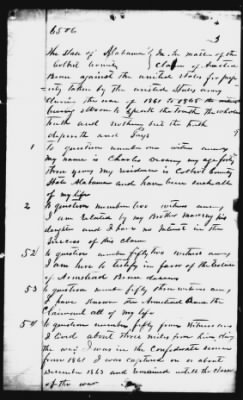 6506
3
The State of Alabama } In the matter of the
Colbert County } Claim of Armstead
Bone against the united States for prop
erty taken by the united States army
during the war of 1861 to 1865
being sworn to speak the truth the whole
truth and nothing but the truth
deposeth and Says
1 to question number one witness answers
my name is Charles my age forty
three years my residence is Colbert County
State Alabama and have been such all
of my life
2 to question number two witness says
I am related by my Brother marrying his
daughter and I have no interest in the
success of this claim
52 to question number fifty two witness says
I am here to testify in favor of the loyalty
of Armstead Bone deceased
53 to question number fifty three witness says
I have known the Armstead Bone the
Claimant all of my life
54 to question number fifty four witness says
I lived about three miles from him during
the war I was in the Confederate service
from 1861 I was captured on or about
December 1863 and remained until the close
of the war